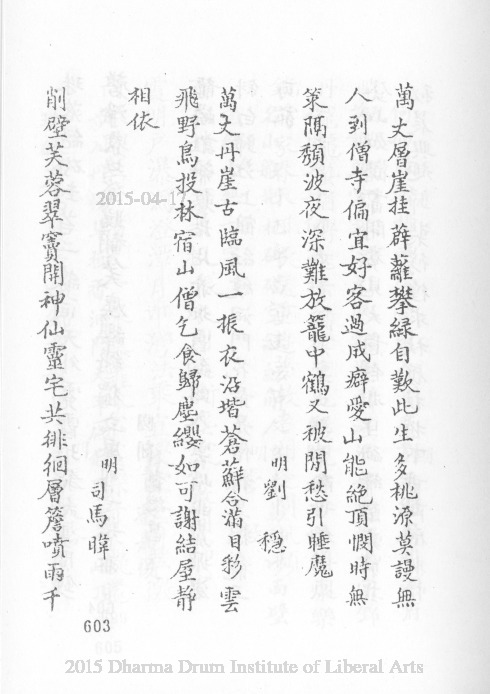 萬丈層崖挂薜蘿攀緣自歎此生多桃源莫謾無
人到僧寺偏宜好客過成癖愛山能絕頂憫時無
策隅頹波夜深難放籠中鶴又被閒愁引睡魔
明劉穩
萬丈丹崖古臨風一振衣沿堦蒼蘚合滿目彩雲
飛野鳥投林宿山僧乞食歸塵纓如可謝結屋靜
相依
明司馬暐
削壁芙蓉翠竇開神仙靈宅共徘徊層簷噴雨千
603
2015-04-17
2015 Dharma Drum Institute of Liberal Arts